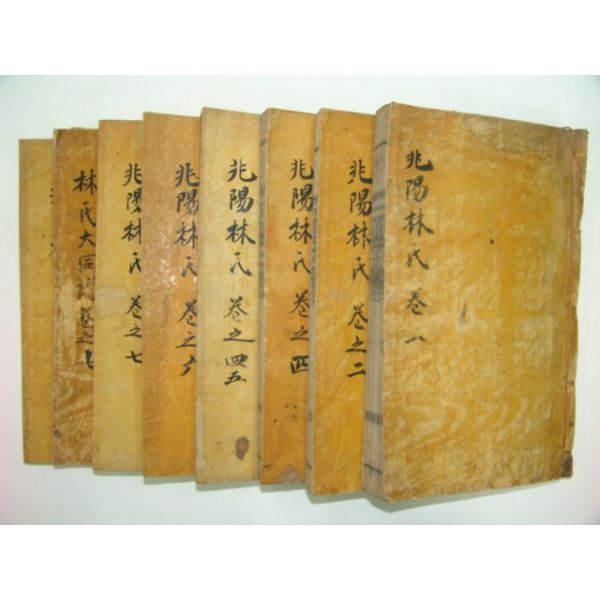 兆陽林氏 卷一
兆陽林氏 卷之二
兆陽林氏 卷之四
兆陽林氏 卷之四五
兆陽林氏 卷之六
兆陽林氏 卷之七
林氏大同譜 卷之七